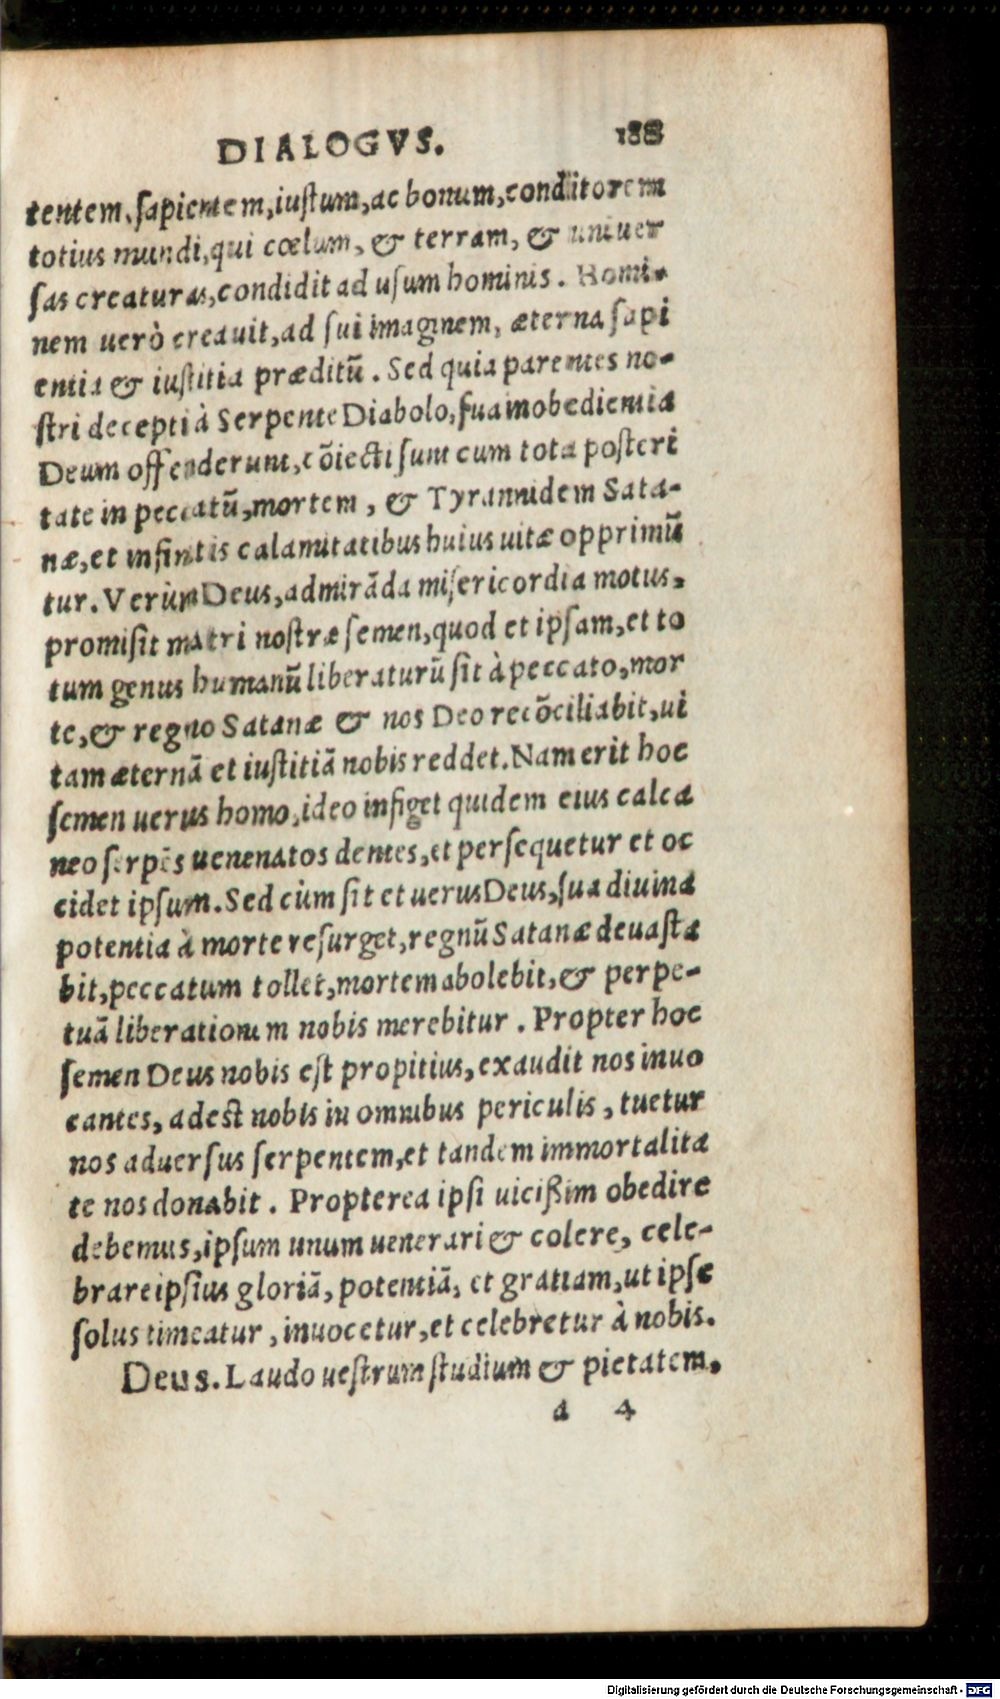 DIALOGVS. 188
tentem, sapientem, iustum, ac bonum, conditorem
totius mundi, qui cœlum, & terram, & uniuer
sas creaturas, condidit ad usum hominis. Homi-
nem uerò creauit, ad sui imaginem, æterna sapi
entia & iustitia præditū. Sed quia parentes no-
stri decepti à Serpente Diabolo, sua inobedientia
Deum offenderunt, cōiecti sunt cum tota posteri
tate in peccatū, mortem, & Tyrannidem Sata-
næ, et infinitis calamitatibus huius uitæ opprimū
tur. Verùm Deus, admirāda misericordia motus,
promisit matri nostræ semen, quod et ipsam, et to
tum genus humanū liberaturū sit à peccato, mor
te, & regno Satanæ & nos Deo recōciliabit, ui
tam æternā et iustitiā nobis reddet. Nam erit hoc
semen uerus homo, ideo infiget quidem eius calca
neo serpēs uenenatos dentes, et persequetur et oc
cidet ipsum. Sed cùm sit et uerus Deus, sua diuina
potentia à morte resurget, regnū Satanæ deuasta
bit, peccatum tollet, mortem abolebit, & perpe-
tuā liberationem nobis merebitur. Propter hoc
semen Deus nobis est propitius, exaudit nos inuo
cantes, adest nobis in omnibus periculis, tuetur
nos aduersus serpentem, et tandem immortalita
te nos donabit. Propterea ipsi uicißim obedire
debemus, ipsum unum uenerari & colere, cele-
brare ipsius gloriā, potentiā, et gratiam, ut ipse
solus timeatur, inuocetur, et celebretur à nobis.
Deus. Laudo uestrum studium & pietatem,
a 4
Digitalisierung gefördert durch die Deutsche Forschungsgemeinschaft - DFG